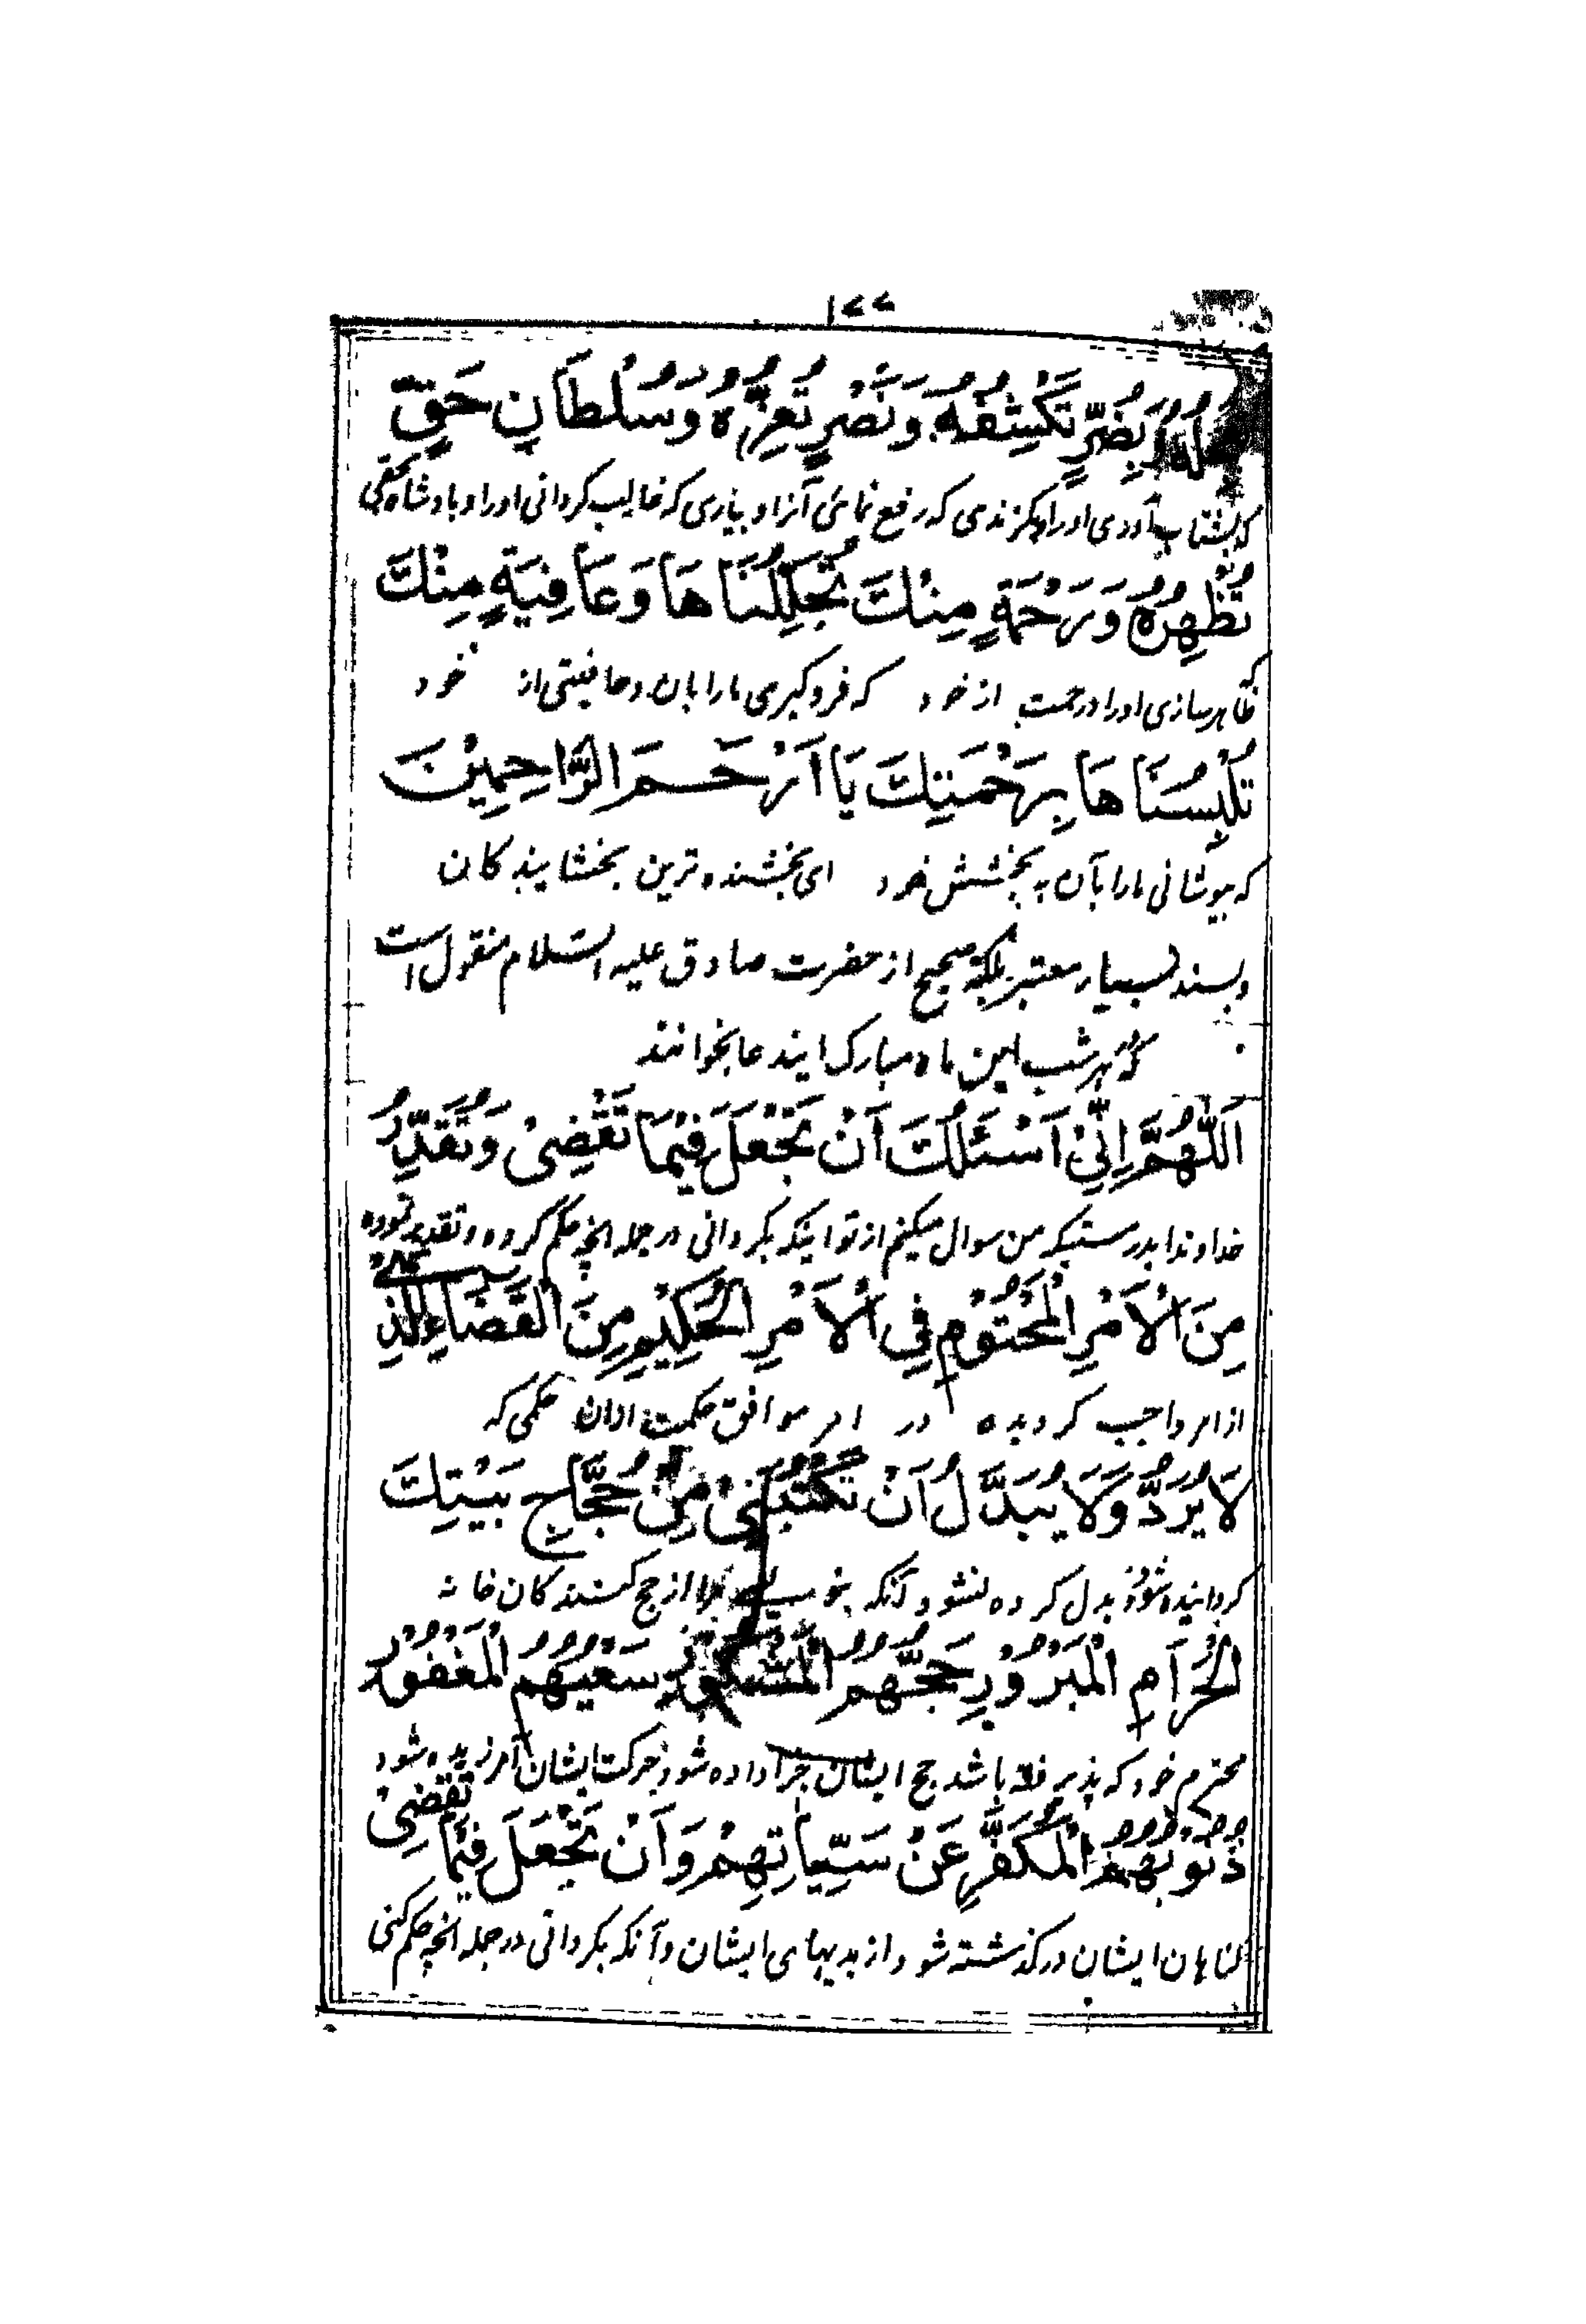 ۱۷۷
وَبِضُرٍّ تَكْشِفُهُ وَنَصْرٍ تُعِزُّهُ وَسُلْطَانِ حَقٍّ
بشتاب آوردی او را و بگزندی که رفع نمائی آنرا و بیاری که غالب گردانی او را و بادشاه
تُظْهِرُهُ وَرَحْمَةٍ مِنْكَ تُجَلِّلُنَاهَا وَعَافِيَةٍ مِنْكَ
که ظاهر سازی او را و رحمت از خود که فروگیری ما را بان و عافیتی از خود
تُلْبِسُنَاهَا بِرَحْمَتِكَ يَا اَرْحَمَ الرَّاحِمِيْنَ
که بپوشانی ما را بآن به بخشش خود ای بخشنده ترین بخشایندکان
و بسند بسیار معتبر بلکه صحیح از حضرت صادق علیه السّلام منقول است
که هر شب این ماه مبارک ایندعا بخوانند
اَللّٰهُمَّ اِنِّيْ اَسْئَلُكَ اَنْ تَجْعَلَ فِيْمَا تَقْضِيْ وَتُقَدِّرُ
خداوندا بدرستیکه من سوال میکنم از تو اینکه بگردانی در جمله انچه حکم کرده و تقدیر نموده
مِنَ الْاَمْرِ الْمَحْتُوْمِ فِي الْاَمْرِ الْحَكِيْمِ مِنَ الْقَضَاءِ الَّذِيْ
از امر واجب کردیده در امر موافق حکمت ازان حکمی که
لَا يُرَدُّ وَلَا يُبَدَّلُ اَنْ تَكْتُبَنِيْ مِنْ حُجَّاجِ بَيْتِكَ
گردانیده نشود و بدل کرده نشود آنکه بنویسی مرا از حج کنندکان خانه
الْحَرَامِ الْمَبْرُوْرِ حَجُّهُمُ الْمَشْكُوْرِ سَعْيُهُمُ الْمَغْفُوْرِ
محترم خود که پذیرفته باشد حج ایشان جزا داده شود حرکت ایشان آمرزیده شود
ذُنُوْبُهُمُ الْمُكَفَّرِ عَنْ سَيِّاٰتِهِمْ وَاَنْ تَجْعَلَ فِيْمَا تَقْضِيْ
گناهان ایشان درگذشته شود از بدیهای ایشان و آنکه بگردانی در جمله انچه حکم کنی